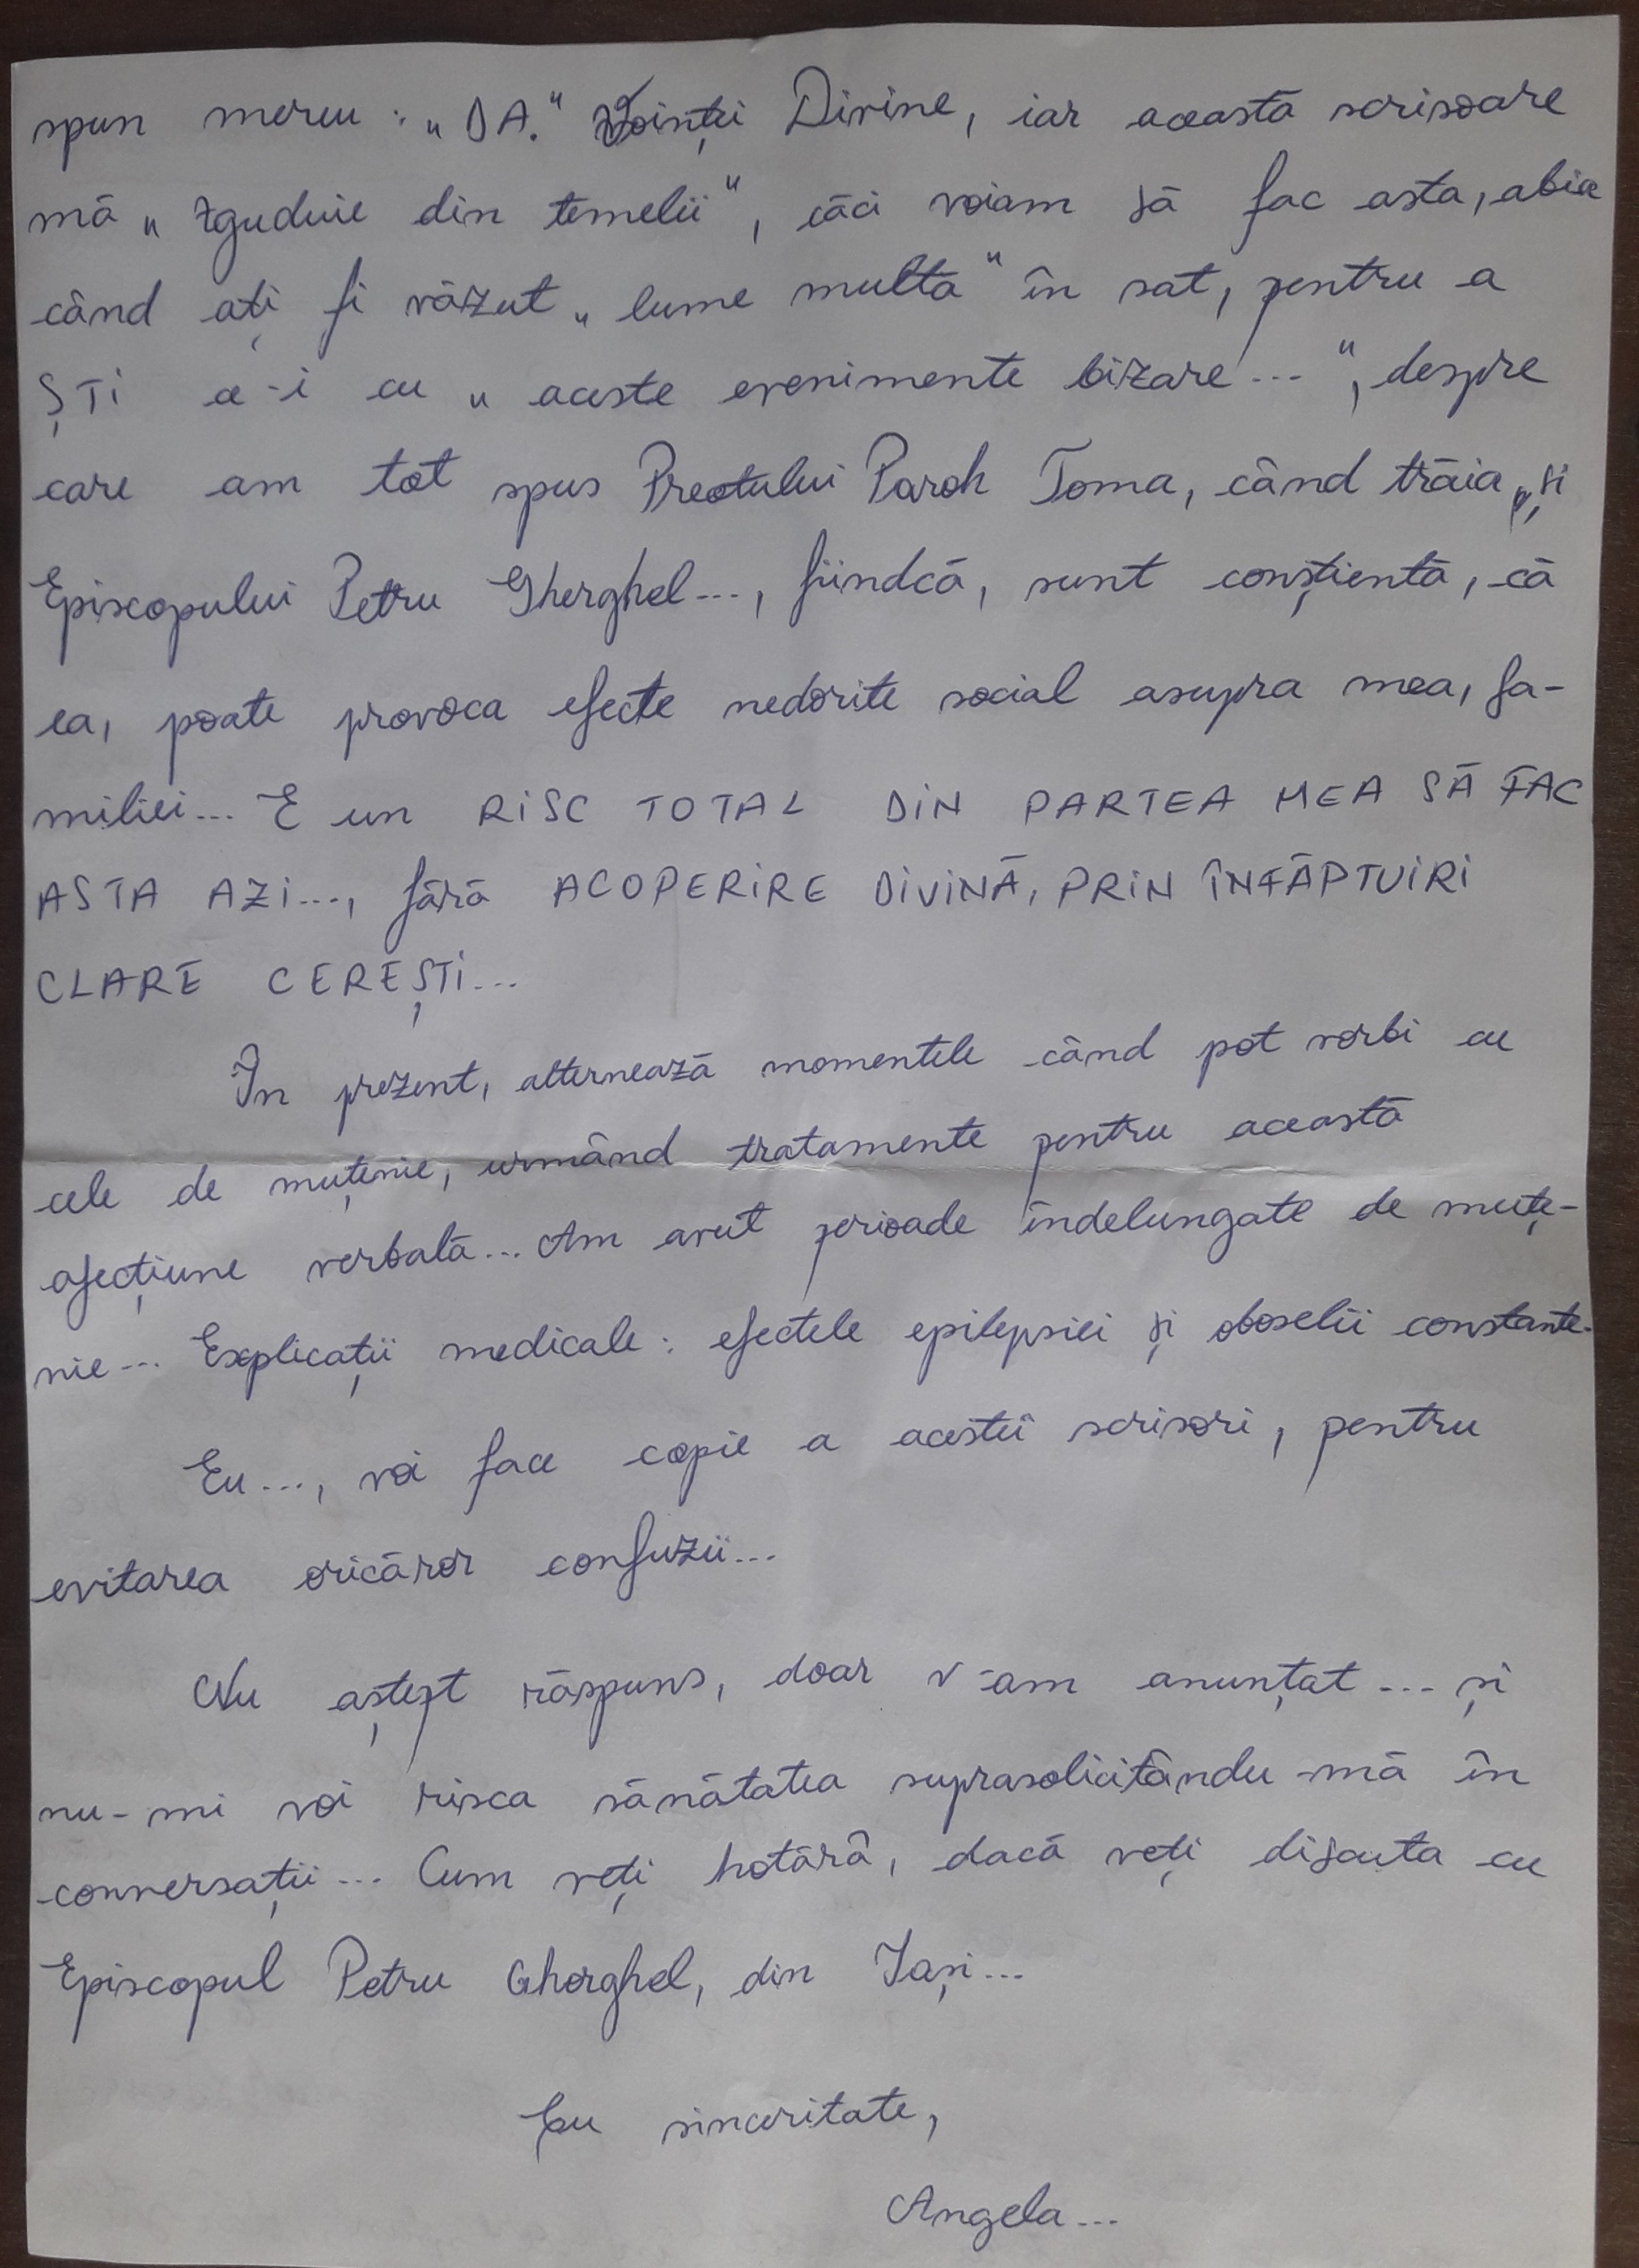 spun mereu : „DA." Voinței Divine, iar această scrisoare
mă „zguduie din temelii", căci voiam să fac asta, abia
când ați fi văzut „lume multă" în sat, pentru a
ȘTI ce-i cu „aceste evenimente bizare...", despre
care am tot spus Preotului Paroh Toma, când trăia, și
Episcopului Petru Gherghel..., fiindcă, sunt conștientă, că
ea, poate provoca efecte nedorite social asupra mea, fa-
miliei... E un RISC TOTAL DIN PARTEA MEA SĂ FAC
ASTA AZI..., fără ACOPERIRE DIVINĂ, PRIN ÎNFĂPTUIRI
CLARE CEREȘTI...
În prezent, alternează momentele când pot vorbi cu
cele de muțenie, urmând tratamente pentru această
afecțiune verbală... Am avut perioade îndelungate de muțe-
nie... Explicații medicale: efectele epilepsiei și oboselii constante.
Eu..., voi face copie a acestei scrisori, pentru
evitarea oricăror confuzii...
Nu aștept răspuns, doar v-am anunțat... și
nu-mi voi risca sănătatea suprasolicitându-mă în
conversații... Cum veți hotărâ, dacă veți discuta cu
Episcopul Petru Gherghel, din Iași...
Cu sinceritate,
Angela...